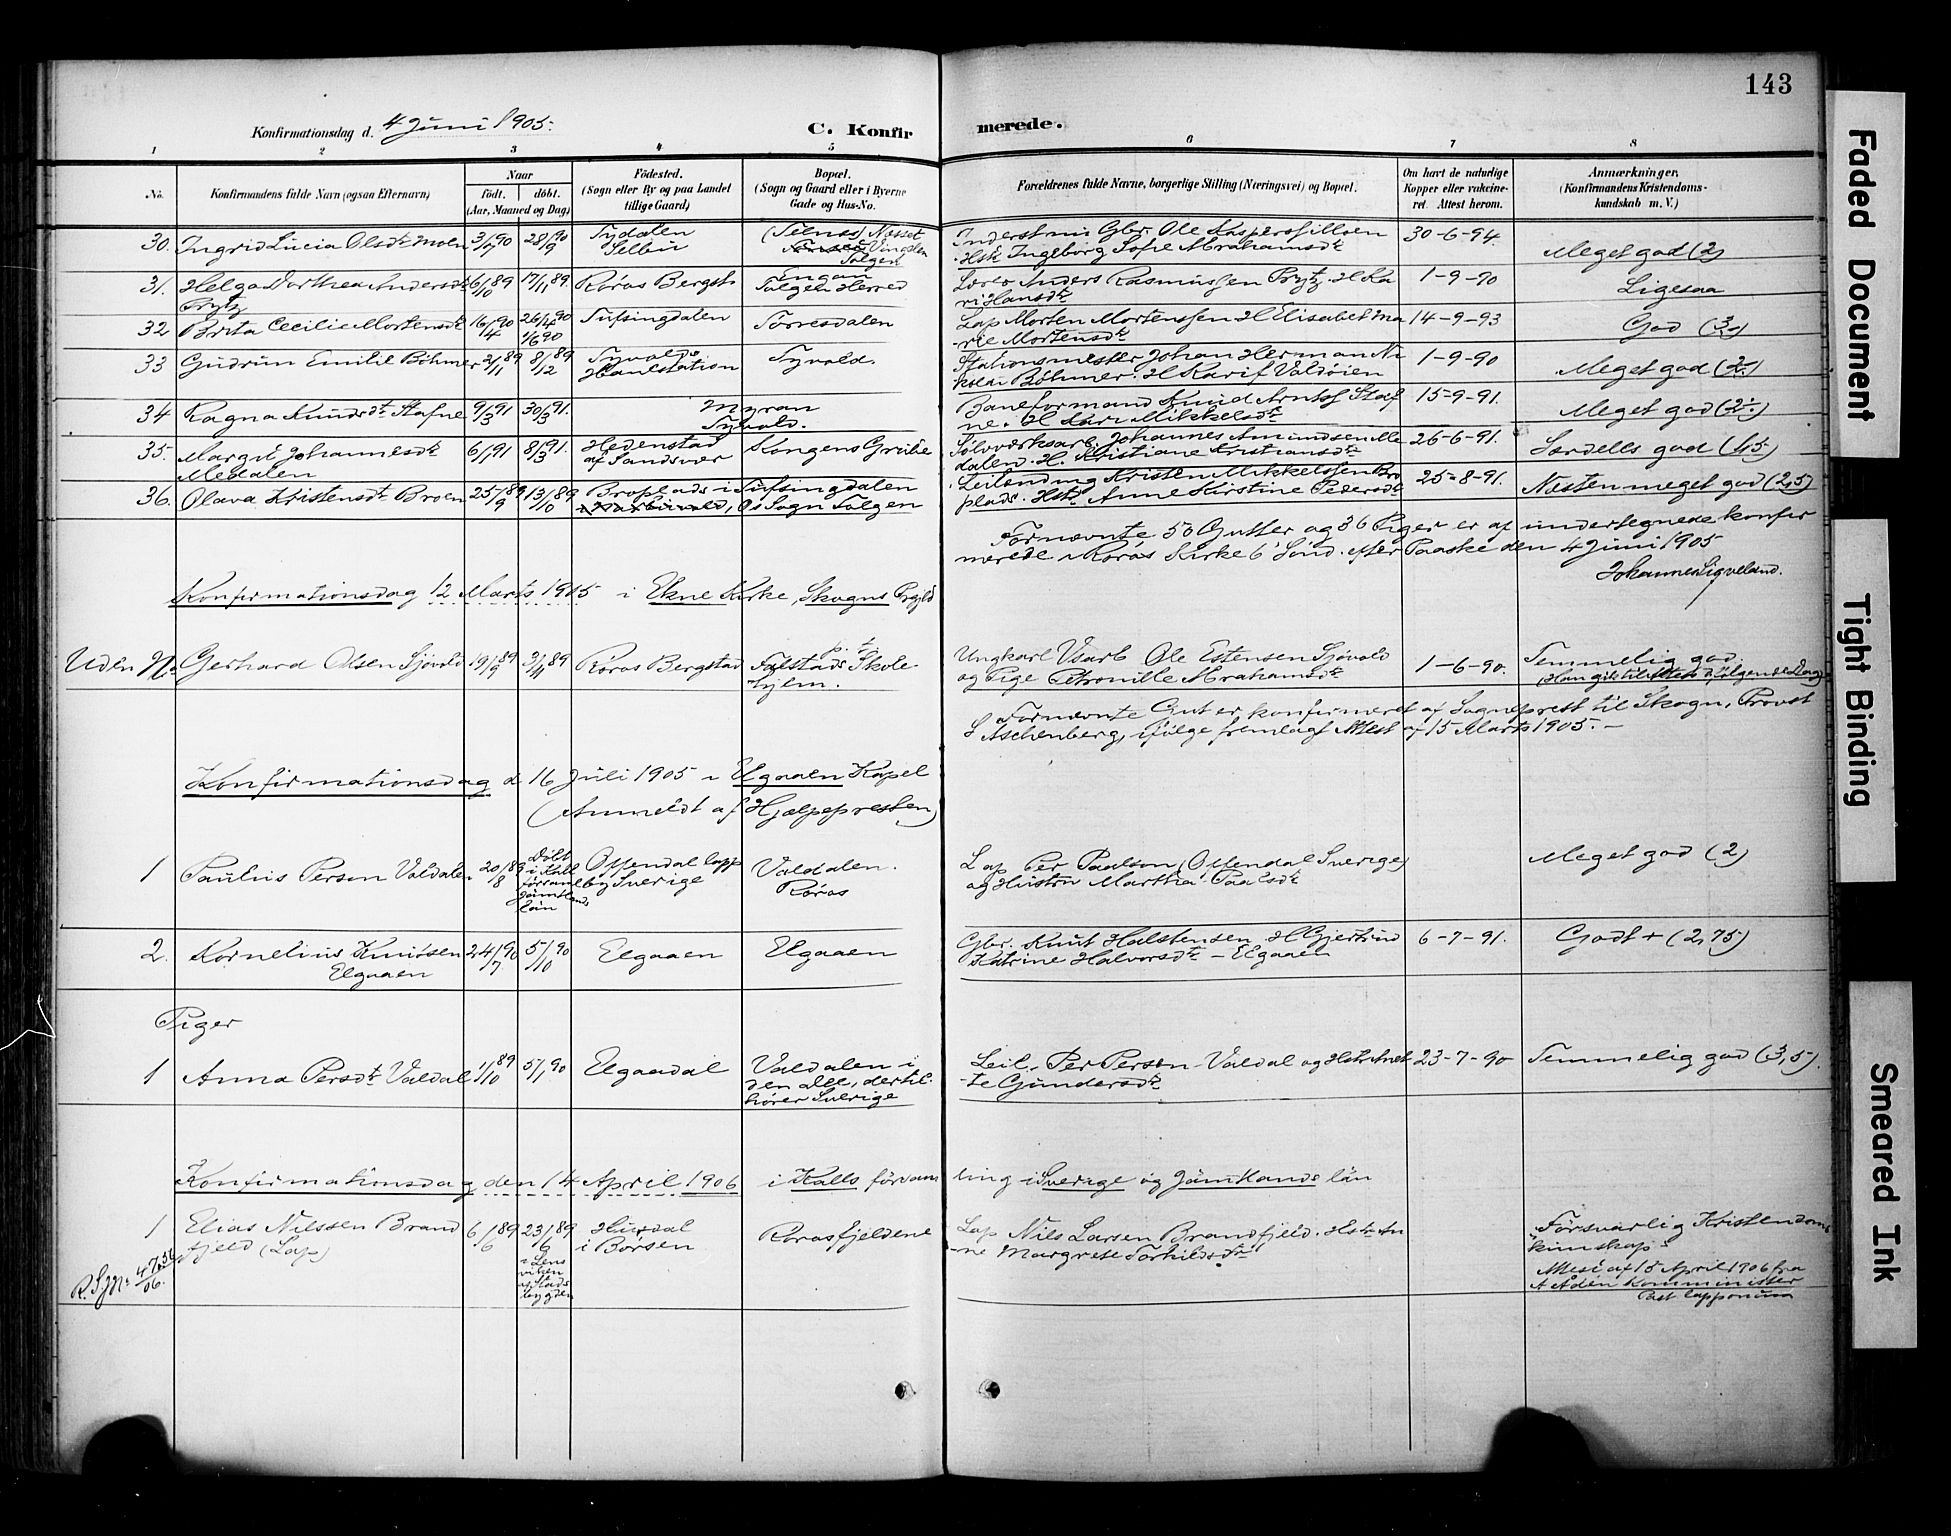 143
Konfirmationsdag d. 4 Juni 1905.
C. Konfirmerede.
1 2 3 4 5 6 7 8
No. Konfirmandens fulde Navn (ogsaa Efternavn) Naar født. døbt. (Aar, Maaned og Dag) Födested. (Sogn eller By og paa Landet tillige Gaard) Bopæl. (Sogn og Gaard eller i Byerne Gade og Hus-No. Forældrenes fulde Navne, borgerlige Stilling (Næringsvei) og Bopæl. Om havt de naturlige Kopper eller vakcineret. Attest herom. Anmærkninger, (Konfirmandens Kristendomskundskab m. V.)
30. Ingrid Lucia Olsdtr Moen 3/7 90 28/9 90 Tydalen Selbu Nesset Vingelen Tolgen
Gbr. Ole Kaspersen Hstr Ingeborg Sofie Abrahamsdtr 30-6-94. Meget god (2)
31. Helga Dorthea Andersdtr Prytz 6/10 89 17/11 89. Røros Bergst. Engan Tolgen Herred
Lærer Anders Rasmussen Prytz. H Kari Hansdtr 1-9-90 Ligesaa
32 Brita Cecilie Mortensdtr 16/4 90 26/4 90 1/6 90 Tufsingdalen Torresdalen
Lap Morten Mortenssen H Elisabet Marie Mortensdtr 14-9-93 God (3)
33 Gudrun Emilie Bøhmer 3/11 89 8/12 89 Tyvolds Station Tyvold.
Stationsmester Johan Herman Nikolai Bøhmer. H Karif Valdøien 1-9-90 Meget god (2.)
34 Ragna Knudsdtr Stafne 9/3 91 30/3 91. Myran Tyvold.
Baneformand Knud Arntsf Stafne. H Kari Mikkelsdtr 15-9-91. Meget god (2.)
35. Margit Johannesdtr Medalen 6/1 91 8/3 91. Hedenstad af Sandsvær Kongens Grube
Sølvværksarb. Johannes Amundsen Medalen. H. Kristiane Kristiansdtr 26-6-91. Særdeles god (1,5)
36. Olava Kristensdtr Broen 25/9 89 13/10 89 Broplads i Tufsingdalen Os Sogn Tolgen
Leilending Kristen Mikkelssen Broplads. Hstr Anne Kirstine Pedersdtr 25-8-91. Næsten meget god (2,5)
Fornævnte 50 Gutter og 36 Piger er af undertegnede konfir
merede i Røros Kirke 6 Sønd. efter Paaske den 4 Juni 1905
Johannes Sigveland.
Konfirmationsdag 12 Marts 1905 i Ekne Kirke, Skogns Prgjld
Uden No. Gerhard Olsen Sjøvold 19/9 89 3/11 89 Røros Bergstad Falstads Skole p. t. hjem.
Ungkarl Vsarb Ole Estensen Sjøvold og Pige Petronille Abrahamsdtr 1-6-90. Temmelig god. (Han gik til Alters følgende Dag)
Fornævnte Gut er konfirmeret af Sogneprest til Skogn, Provst
S Aschenberg, ifølge fremlagt Attest af 15 Marts 1905.-
Konfirmationsdag d 16 Juli 1905 i Elgaaen Kapel
(Anmeldt af Hjælpepresten)
1 Paulus Person Valdalen 20/8 89 Døbt i Kall församl Jämtlands län Offendal lappby Sverige Valdalen. Røros
Lap Per Paalson (Offendal Sverige) og Hustru Martha Paalsdtr Meget god (2)
2. Kornelius Knudsen Elgaaen 24/7 90 5/10 90 Elgaaen Elgaaen
Gbr. Knut Halstensen H Gjertrud Katrine Halvorsdtr - Elgaaen 6-7-91. Godt + (2,75)
Piger
1 Anna Persdtr Valdal 1/10 89 5/1 90 Elgaadal Valdalen i den Del, der tilhører Sverige
Leil. Per Person Valdal og Hstr Anette Gundersdtr 23-7-90 Temmelig god (3,5)
Konfirmationsdag den 14 April 1906 i Kalls församling i Sverige og Jämtlands län
1 Elias Nilssen Brandfjeld (Lap) 6/6 89 23/6 89 i Lensviken as Stadsbygden Hurdal i Børsen Rørosfjeldene
Lap Nils Larsen Brandfjeld. Hstr Anne Margrete Torkildsdtr. "Försvarlig Kristendomskunskap"
Attest af 15 April 1906 fra A Ådén Komminister Past lapponum